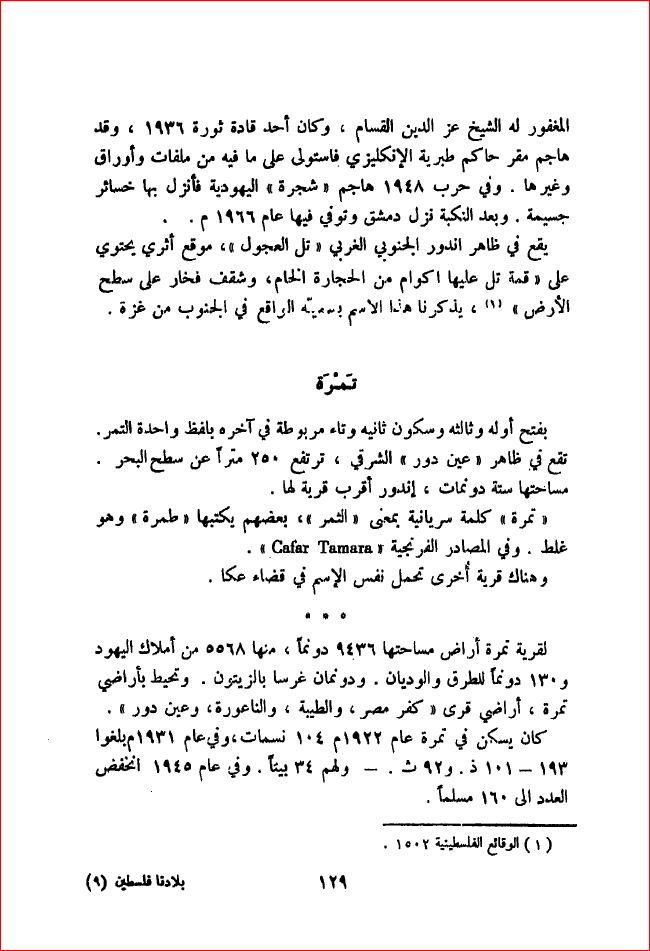 المغفور له الشيخ عز الدين القسام ، وكان أحد قادة ثورة ١٩٣٦ ، وقد
هاجم مقر حاكم طبرية الإنكليزي فاستولى على ما فيه من ملفات وأوراق
وغيرها . وفي حرب ١٩٤٨ هاجم « شجرة » اليهودية فأنزل بها خسائر
جسيمة . وبعد النكبة نزل دمشق وتوفي فيها عام ١٩٦٦ م .
يقع في ظاهر اندور الجنوبي الغربي « تل العجول »، موقع أثري يحتوي
على « قمة تل عليها اكوام من الحجارة الخام، وشقف فخار على سطح
الأرض » (١) ، يذكرنا هذا الاسم بسميّه الواقع في الجنوب من غزة .
تَمْرَة
بفتح أوله وثالثه وسكون ثانيه وتاء مربوطة في آخره بلفظ واحدة التمر.
تقع في ظاهر « عين دور » الشرقي ، ترتفع ٢٥٠ متراً عن سطح البحر .
مساحتها ستة دونمات ، إندور أقرب قرية لها .
« تمرة » كلمة سريانية بمعنى « الثمر »، بعضهم يكتبها « طمرة » وهو
غلط . وفي المصادر الفرنجية « Cafar Tamara » .
وهناك قرية أخرى تحمل نفس الإسم في قضاء عكا .
* * *
لقرية تمرة أراض مساحتها ٩٤٣٦ دونماً ، منها ٥٥٦٨ من أملاك اليهود
و١٣٠ دونماً للطرق والوديان . ودونمان غرسا بالزيتون . وتحيط بأراضي
تمرة ، أراضي قرى « كفر مصر، والطيبة ، والناعورة، وعين دور » .
كان يسكن في تمرة عام ١٩٢٢م ١٠٤ نسمات،وفي عام ١٩٣١م بلغوا
١٩٣ – ١٠١ ذ . و٩٢ ث . – ولهم ٣٤ بيتاً . وفي عام ١٩٤٥ انخفض
العدد الى ١٦٠ مسلماً .
(١) الوقائع الفلسطينية ١٥٠٢ .
١٢٩
بلادنا فلسطين (٩)